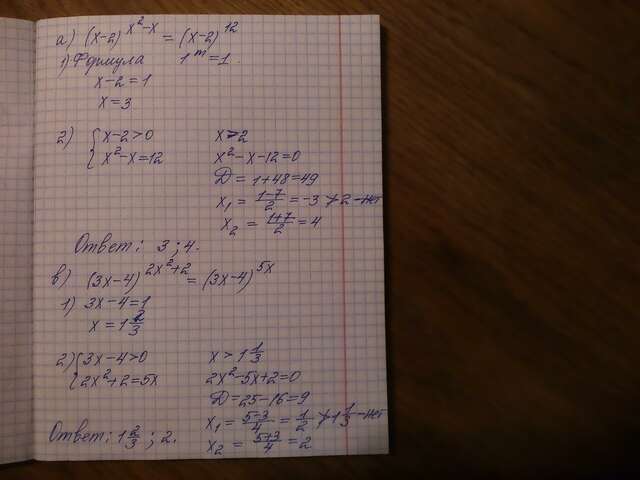 а) (x-2)^{x²-x} = (x-2)^{12}
1) Формула 1^m = 1.
x-2=1
x=3
2) { x-2>0 x>2
{ x²-x=12 x²-x-12=0
Д = 1+48=49
x₁ = \frac{1-7}{2} = -3 ≯2 - нет
x₂ = \frac{1+7}{2} = 4
Ответ: 3; 4.
в) (3x-4)^{2x²+2} = (3x-4)^{5x}
1) 3x-4=1
x=1\frac{2}{3}
2) { 3x-4>0 x>1\frac{1}{3}
{ 2x²+2=5x 2x²-5x+2=0
Д=25-16=9
x₁ = \frac{5-3}{4} = \frac{1}{2} ≯1\frac{1}{3} - нет
x₂ = \frac{5+3}{4} = 2
Ответ: 1\frac{2}{3}; 2.